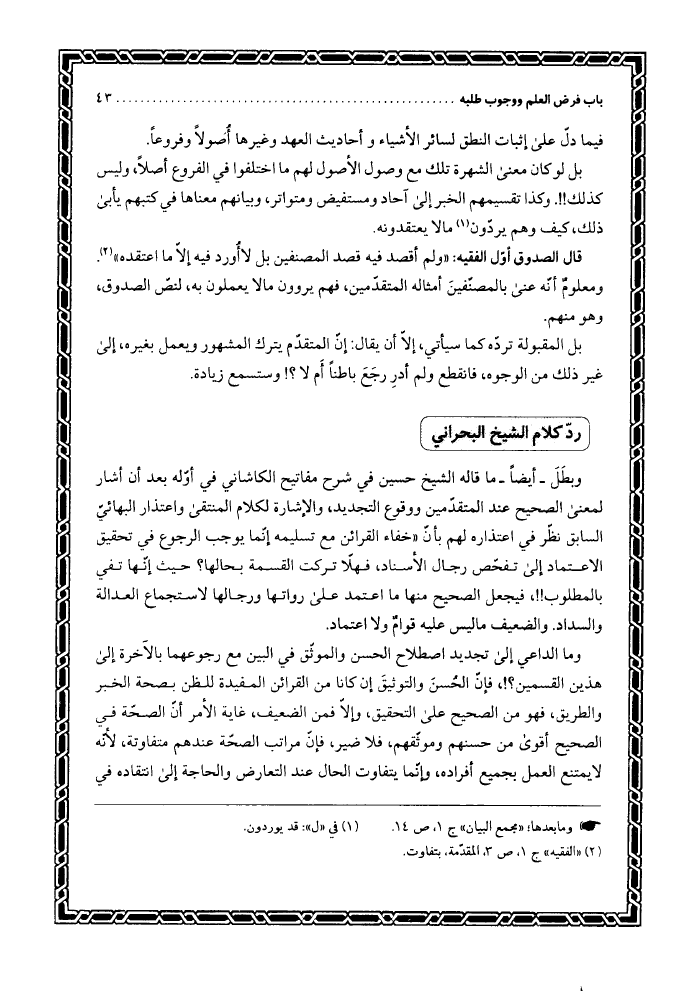 باب فرض العلم ووجوب طلبه ........................................................ ٤٣
فيما دلّ علىٰ إثبات النطق لسائر الأشياء و أحاديث العهد وغيرها أُصولاً وفروعاً.
بل لو كان معنىٰ الشهرة تلك مع وصول الأصول لهم ما اختلفوا في الفروع أصلاً، وليس
كذلك!!. وكذا تقسيمهم الخبر إلىٰ آحاد ومستفيض ومتواتر، وبيانهم معناها في كتبهم يأبىٰ
ذلك، كيف وهم يردّون(١) مالا يعتقدونه.
قال الصدوق أوّل الفقيه: «ولم أقصد فيه قصد المصنفين بل لاأُورد فيه إلاّ ما اعتقده»(٢).
ومعلومٌ أنّه عنىٰ بالمصنّفينَ أمثاله المتقدّمين، فهم يروون مالا يعملون به، لنصّ الصدوق،
وهو منهم.
بل المقبولة تردّه كما سيأتي، إلاّ أن يقال: إنّ المتقدّم يترك المشهور ويعمل بغيره، إلىٰ
غير ذلك من الوجوه، فانقطع ولم أدرِ رجَعَ باطناً أَم لا ؟! وستسمع زيادة.
ردّ كلام الشيخ البحراني
وبطَلَ ـ أيضاً ـ ما قاله الشيخ حسين في شرح مفاتيح الكاشاني في أوّله بعد أن أشار
لمعنىٰ الصحيح عند المتقدّمين ووقوع التجديد، والإشارة لكلام المنتقىٰ واعتذار البهائيّ
السابق نظّر في اعتذاره لهم بأنّ «خفاء القرائن مع تسليمه إنّما يوجب الرجوع في تحقيق
الاعتماد إلىٰ تفحّص رجال الأسناد، فهلّا تركت القسمة بحالها؟ حيث إنّها تفي
بالمطلوب!!، فيجعل الصحيح منها ما اعتمد علىٰ رواتها ورجالها لاستجماع العدالة
والسداد. والضعيف ماليس عليه قوامٌ ولا اعتماد.
وما الداعي إلىٰ تجديد اصطلاح الحسن والموثّق في البين مع رجوعهما بالآخرة إلىٰ
هذين القسمين؟!، فإنّ الحُسنَ والتوثيقَ إن كانا من القرائن المفيدة للظن بصحة الخبر
والطريق، فهو من الصحيح علىٰ التحقيق، وإلاّ فمن الضعيف، غاية الأمر أنّ الصحّة في
الصحيح أقوىٰ من حسنهم وموثّقهم، فلا ضير، فإنّ مراتب الصحّة عندهم متفاوتة، لأنّه
لايمتنع العمل بجميع أفراده، وإنّما يتفاوت الحال عند التعارض والحاجة إلىٰ انتقاده في
☛ ومابعدها؛ «مجمع البيان» ج ١، ص ١٤. (١) في «ل»: قد يوردون.
(٢) «الفقيه» ج ١، ص ٣، المقدّمة، بتفاوت.